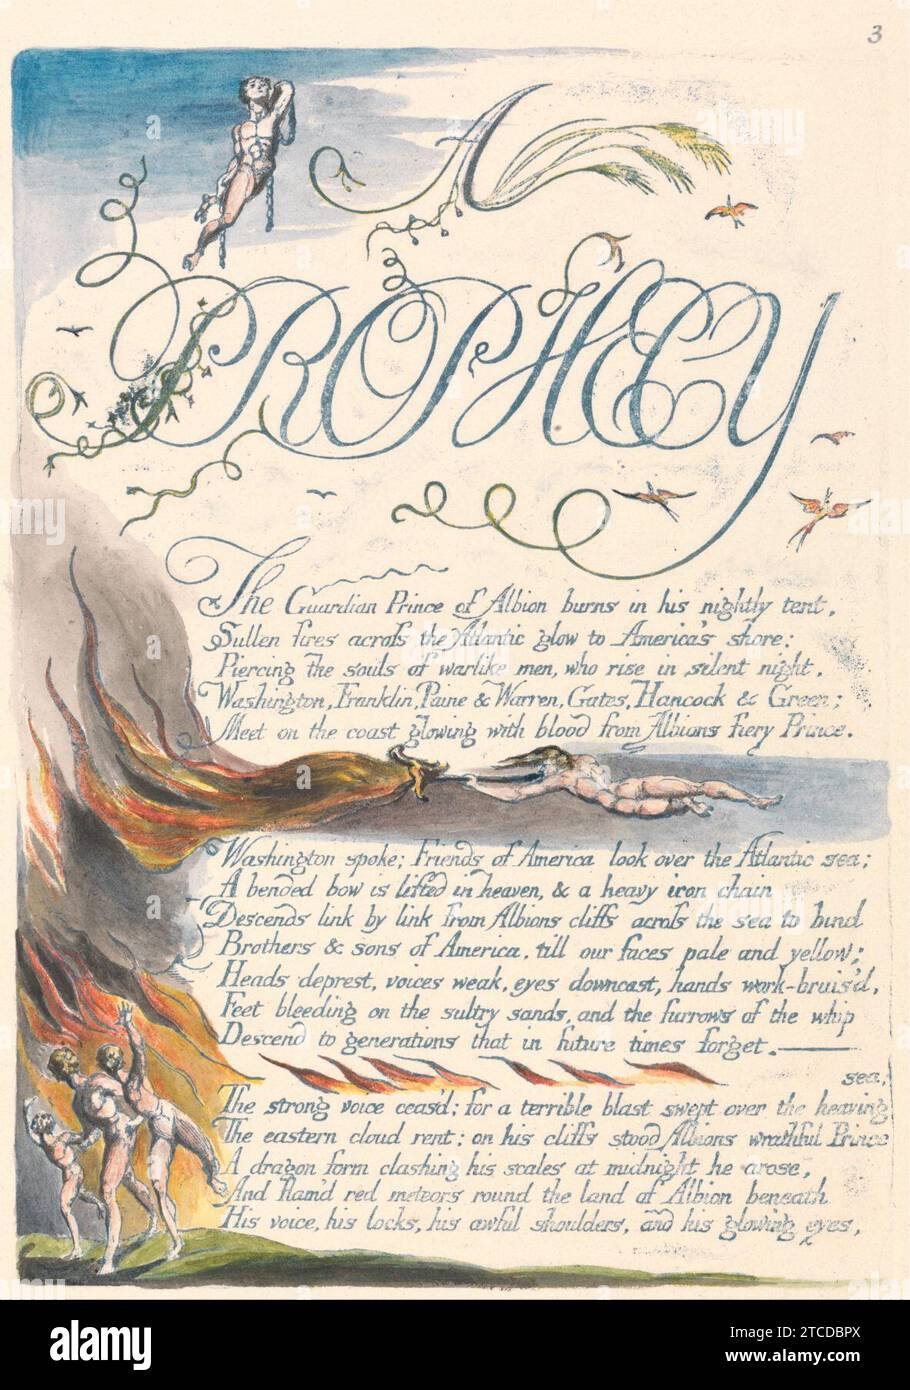 3
A
PROPHECY
The Guardian Prince of Albion burns in his nightly tent,
Sullen fires acroſs the Atlantic glow to America's shore:
Piercing the souls of warlike men, who rise in silent night,
Washington, Franklin, Paine & Warren, Gates, Hancock & Green;
Meet on the coast glowing with blood from Albions fiery Prince.
Washington spoke; Friends of America look over the Atlantic sea;
A bended bow is lifted in heaven, & a heavy iron chain
Descends link by link from Albions cliffs acroſs the sea to bind
Brothers & sons of America, till our faces pale and yellow;
Heads deprest, voices weak, eyes downcast, hands work-bruis'd,
Feet bleeding on the sultry sands, and the furrows of the whip
Descend to generations that in future times forget.
sea.
The strong voice ceas'd; for a terrible blast swept over the heaving
The eastern cloud rent; on his cliffs stood Albions wrathful Prince
A dragon form clashing his scales at midnight he arose,
And flam'd red meteors round the land of Albion beneath
His voice, his locks, his awful shoulders, and his glowing eyes,
alamy
Image ID: 2TCDBPX
www.alamy.com